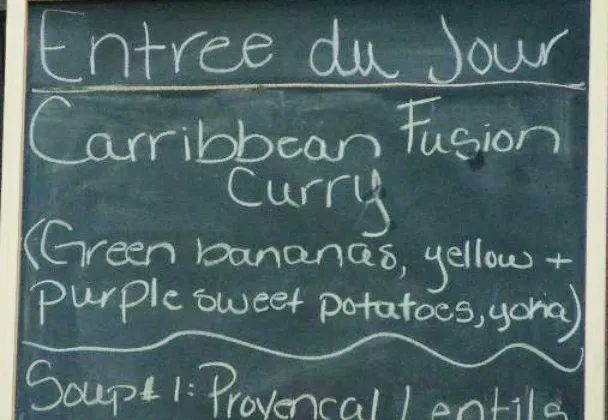 Entree du Jour
Carribbean Fusion
Curry
(Green bananas, yellow +
purple sweet potatoes, yoha)
Soup #1: Provencal Lentils